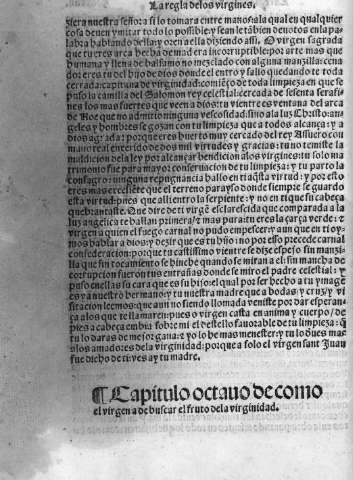 La regla de los virgines.
ziera nuestra señora si lo tomara entre manos a la qual en qualquier
cosa deuen ymitar todo lo possible, y sean le tābien deuotos en la pa
labra hablando della, y con ella diziendo assi. O virgen sagrada
que tu eres arca hecha de madera incorruptible por arte mas que
humana y llena de balsamo no mezclado con alguna manzilla: cena
do: eres tu del hijo de dios donde el entro y salio quedando te toda
cerrada: capitana de virginidad: comiēço de toda limpieza en que se
puso la camilla del Salomon rey celestial: cercada de sesenta serafi
nes los mas fuertes que veen a dios: tu vientre es ventana del arca
de Noe que no admitio ninguna vescosidad: sino a la luz Christo: an
geles y hombres se gozan con tu limpieza que a todos alcança: y a
dios agrada: porque eres huerto muy cercado del rey Assuero con
mano real enxerido de dos mil virtudes y gracias: tu no temiste la
maldicion de la ley por alcançar bendicion a los virgines: tu solo ma
trimonio fue para mayor conseruacion de tu limpieza: y tu parto la
consagro: ninguna repugnancia hallo en ti aq̄sta virtud: y por esto
eres mas excelēte que el terreno parayso donde siempre se guardo
esta virtud: pues que alli entro la serpiente: y no en ti que su cabeça
quebrantaste. Que dire de ti virgē esclarescida que comparada a la
luz angelica te hallan primera: y mas pura: tu eres la çarça verde: o
virgen a quien el fuego carnal no pudo empescer: y aun que en ti oy
mos hablar a dios: y dezir que es tu hijo: no por esso precede carnal
confederacion: porque tu castissimo vientre se hizo espejo sin manzi
lla que sin tocamiento se hinche quando se miran a el: sin mancha de
corrupcion fueron tus entrañas donde se miro el padre celestial: y
puso en ellas su cara que es su hijo: el qual por ser hecho a tu ymagē
es ya nuestro hermano: y tu nuestra madre que a bodas: y cruz: y vi
sitacion leemos que aun no siendo llamada veniste por dar esperan
ça a los que te llamaren: pues o virgen casta en anima y cuerpo: de
pies a cabeça embia sobre mi el destello fauorable de tu limpieza: q̄
tu lo daras de mejor gana: y yo lo he mas menester: y tu lo dues mas
a los amadores de la virginidad: porque a solo el virgen sant Juan
fue dicho de ti ves ay tu madre.
¶ Capitulo octauo de como
el virgen a de buscar el fruto de la virginidad.